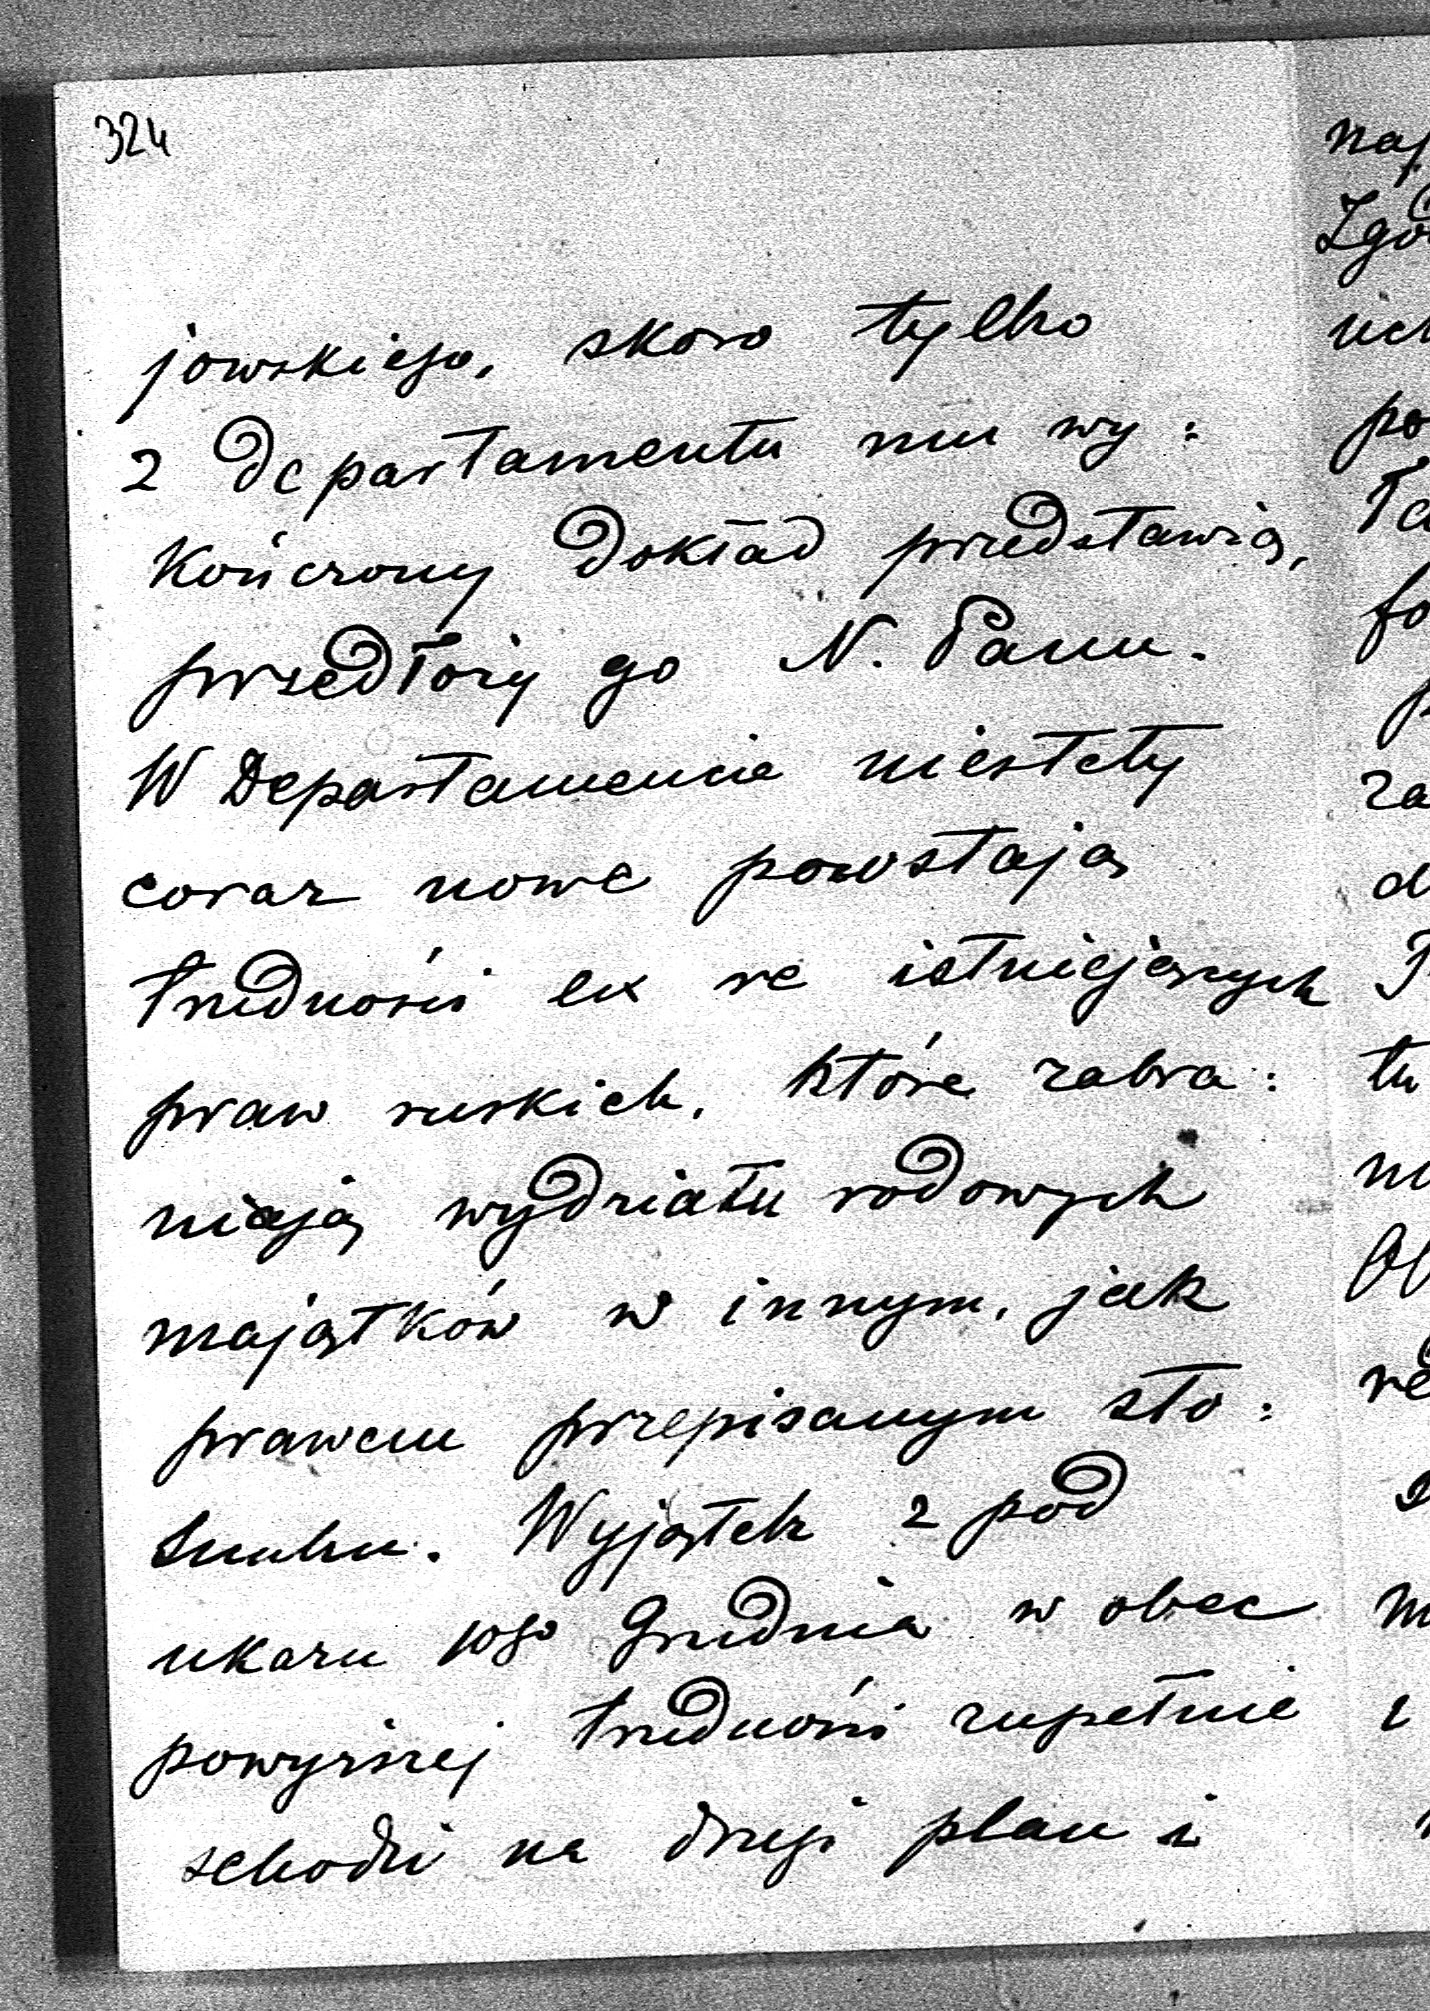 324
jowskiego, skoro tylko
z departamentu mu wy:
kończony dokład przedstawią,
przedłoży go N. Panu.
W Departamencie niestety
coraz nowe powstają
trudności ex re istniejących
praw ruskich, które zabra:
niają wydziału rodowych
majątków w innym, jak
prawem przepisanym sto:
sunku. Wyjątek z pod
ukazu 10go Grudnia w obec
powyższej trudności zupełnie
schodzi na drugi plan i